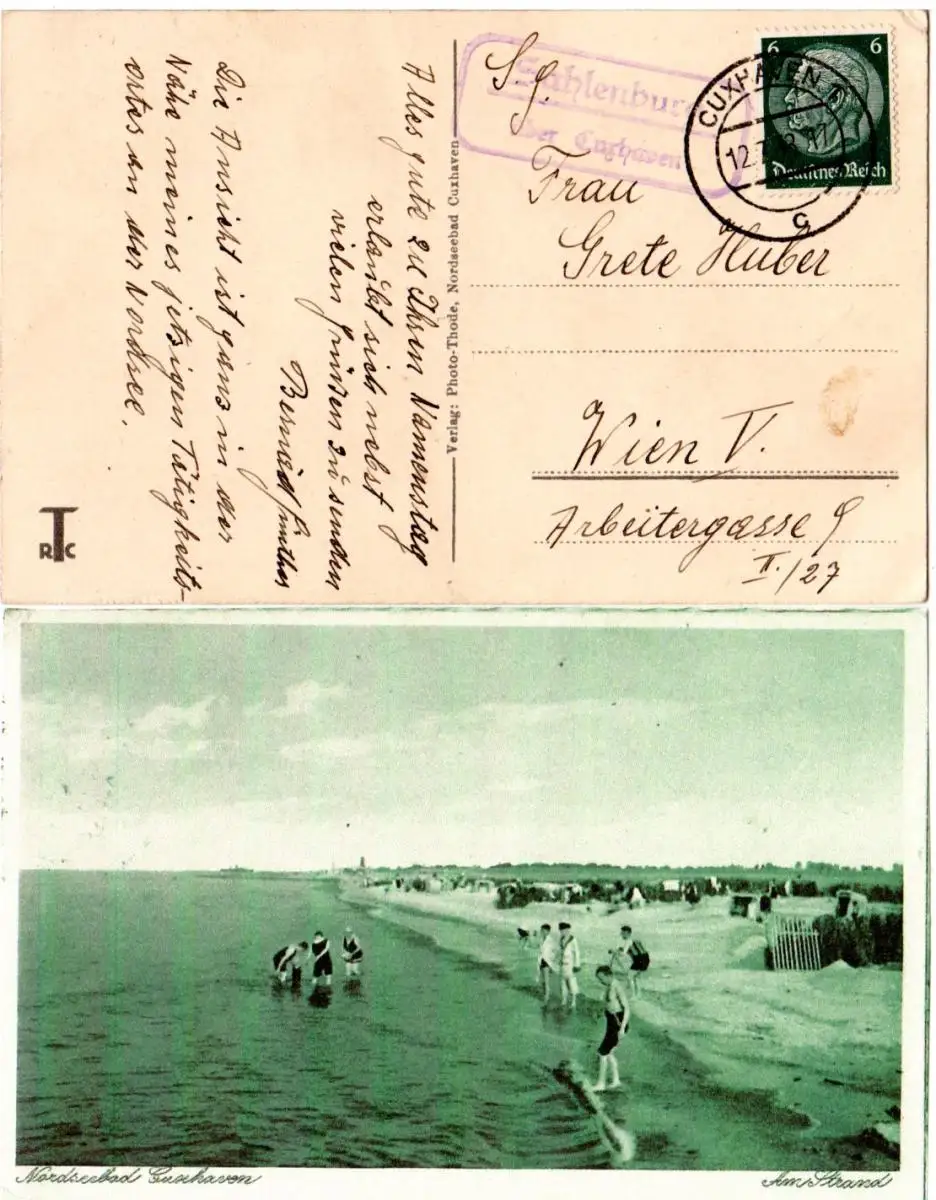 Alles gute zu Ihrem Namenstag
erlaubt sich nebst
vielen grüßen zu senden
Die Ansicht ist ganz in der
Nähe meines jetzigen Tätigkeits-
ortes an der Nordsee.
TRC
Verlag: Photo-Thode, Nordseebad Cuxhaven
Sahlenburg
über Cuxhaven
CUXHAVEN
12.
c
6 6
Deutsches Reich
S. g.
Frau
Grete Huber
Wien V.
Arbeitergasse 9
II./27
Nordseebad Cuxhaven
Am Strand